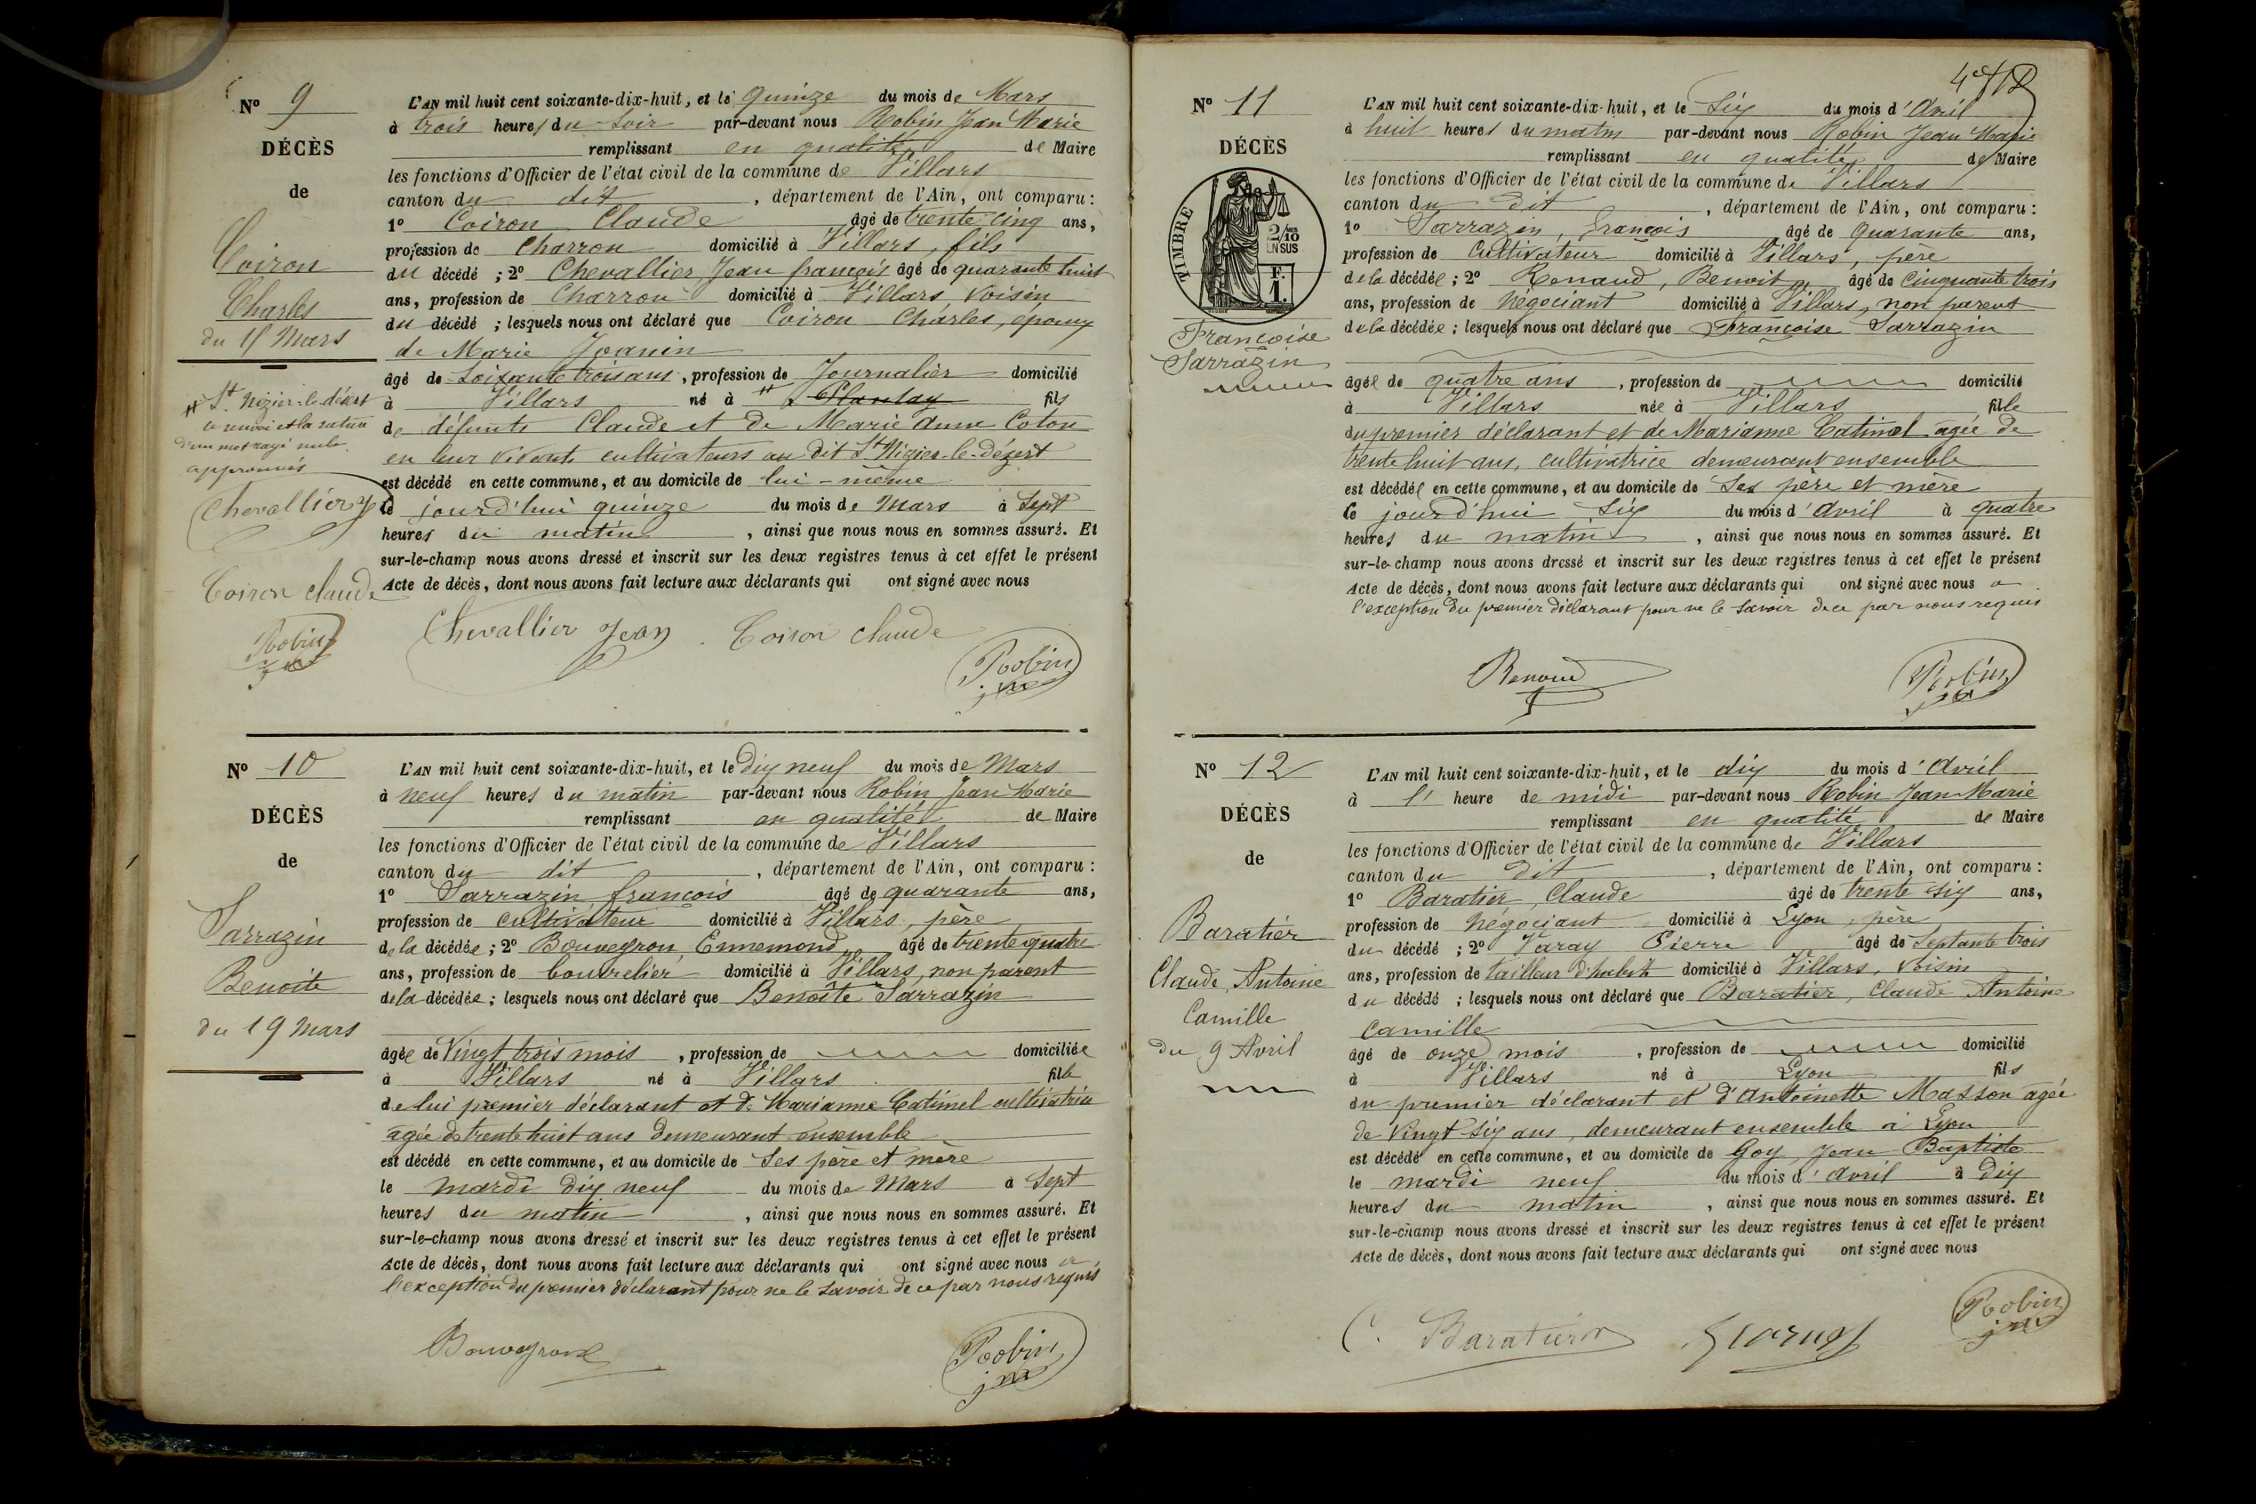 N° 9
DÉCÈS
de
Coiron
Charles
du 15 Mars
# St Nizier-le-désert
le renvoi et la rature
d'un mot rayé nul
approuvés
Chevallier J
Coiron Claude
Robin
L'AN mil huit cent soixante-dix-huit, et le quinze du mois de Mars
à trois heures du soir par-devant nous Robin Jean Marie
remplissant en qualité de Maire
les fonctions d'Officier de l'état civil de la commune de Villars
canton du dit, département de l'Ain, ont comparu :
1° Coiron Claude âgé de trente cinq ans,
profession de Charron domicilié à Villars, fils
du décédé ; 2° Chevallier Jean françois âgé de quarante huit
ans, profession de Charron domicilié à Villars, voisin
du décédé ; lesquels nous ont déclaré que Coiron Charles, époux
de Marie Joanin
âgé de soixante trois ans, profession de Journalier domicilié
à Villars né à # fils
de défunts Claude et de Marie Anne Coton
en leur vivants cultivateurs au dit St Nizier-le-Désert
est décédé en cette commune, et au domicile de lui-même
le jourd'hui quinze du mois de Mars à Sept
heures du matin, ainsi que nous nous en sommes assuré. Et
sur-le-champ nous avons dressé et inscrit sur les deux registres tenus à cet effet le présent
Acte de décès, dont nous avons fait lecture aux déclarants qui ont signé avec nous
Chevallier Jean Coiron Claude
Robin
N° 10
DÉCÈS
de
Sarrazin
Benoite
du 19 Mars
L'AN mil huit cent soixante-dix-huit, et le dix neuf du mois de Mars
à neuf heures du matin par-devant nous Robin Jean Marie
remplissant en qualité de Maire
les fonctions d'Officier de l'état civil de la commune de Villars
canton du dit, département de l'Ain, ont comparu :
1° Sarrazin françois âgé de quarante ans,
profession de cultivateur domicilié à Villars, père
de la décédée ; 2° Bouveyron, Ennemond, âgé de trente quatre
ans, profession de bourrelier domicilié à Villars, non parent
de la décédée ; lesquels nous ont déclaré que Benoîte Sarrazin
âgée de Vingt trois mois, profession de domiciliée
à Villars né à Villars fille
de lui premier déclarant et de Marianne Catimel cultivatrice
agée de trente huit ans demeurant ensemble
est décédé en cette commune, et au domicile de Ses père et mère
le mardi dix neuf du mois de Mars à Sept
heures du matin, ainsi que nous nous en sommes assuré. Et
sur-le-champ nous avons dressé et inscrit sur les deux registres tenus à cet effet le présent
Acte de décès, dont nous avons fait lecture aux déclarants qui ont signé avec nous a
l'exception du premier déclarant pour ne le savoir de ce par nous requis
Bouveyron
Robin
N° 11
DÉCÈS
TIMBRE
2/10
EN SUS
F.
1.
Françoise
Sarrazin
L'AN mil huit cent soixante-dix-huit, et le Six du mois d'Avril
à huit heures du matin par-devant nous Robin Jean Marie
remplissant en qualité de Maire
les fonctions d'Officier de l'état civil de la commune de Villars
canton du dit, département de l'Ain, ont comparu :
1° Sarrazin, François âgé de quarante ans,
profession de Cultivateur domicilié à Villars, père
de la décédée ; 2° Renaud, Benoit, âgé de Cinquante trois
ans, profession de Négociant domicilié à Villars, non parent
de la décédée ; lesquels nous ont déclaré que Françoise Sarrazin
âgée de quatre ans, profession de domicilié
à Villars née à Villars fille
du premier déclarant et de Marianne Catimel agée de
trente huit ans, cultivatrice demeurant ensemble
est décédée en cette commune, et au domicile de Ses père et mère
le jourd'hui Six du mois d'Avril à quatre
heures du matin, ainsi que nous nous en sommes assuré. Et
sur-le-champ nous avons dressé et inscrit sur les deux registres tenus à cet effet le présent
Acte de décès, dont nous avons fait lecture aux déclarants qui ont signé avec nous a
l'exception du premier déclarant pour ne le savoir de ce par nous requis
Renaud
Robin
N° 12
DÉCÈS
de
Baratier
Claude, Antoine
Camille
du 9 Avril
L'AN mil huit cent soixante-dix-huit, et le dix du mois d'Avril
à 1 heure de midi par-devant nous Robin Jean Marie
remplissant en qualité de Maire
les fonctions d'Officier de l'état civil de la commune de Villars
canton du dit, département de l'Ain, ont comparu :
1° Baratier, Claude âgé de trente six ans,
profession de Négociant domicilié à Lyon, père
du décédé ; 2° Varay Pierre âgé de Septante trois
ans, profession de tailleur d'habits domicilié à Villars, voisin
du décédé ; lesquels nous ont déclaré que Baratier, Claude Antoine
Camille
âgé de onze mois, profession de domicilié
à Villars né à Lyon fils
du premier déclarant et d'Antoinette Masson agée
de Vingt six ans, demeurant ensemble à Lyon
est décédé en cette commune, et au domicile de Goy Jean Baptiste
le mardi neuf du mois d'Avril à Dix
heures du matin, ainsi que nous nous en sommes assuré. Et
sur-le-champ nous avons dressé et inscrit sur les deux registres tenus à cet effet le présent
Acte de décès, dont nous avons fait lecture aux déclarants qui ont signé avec nous
C. Baratier
Robin